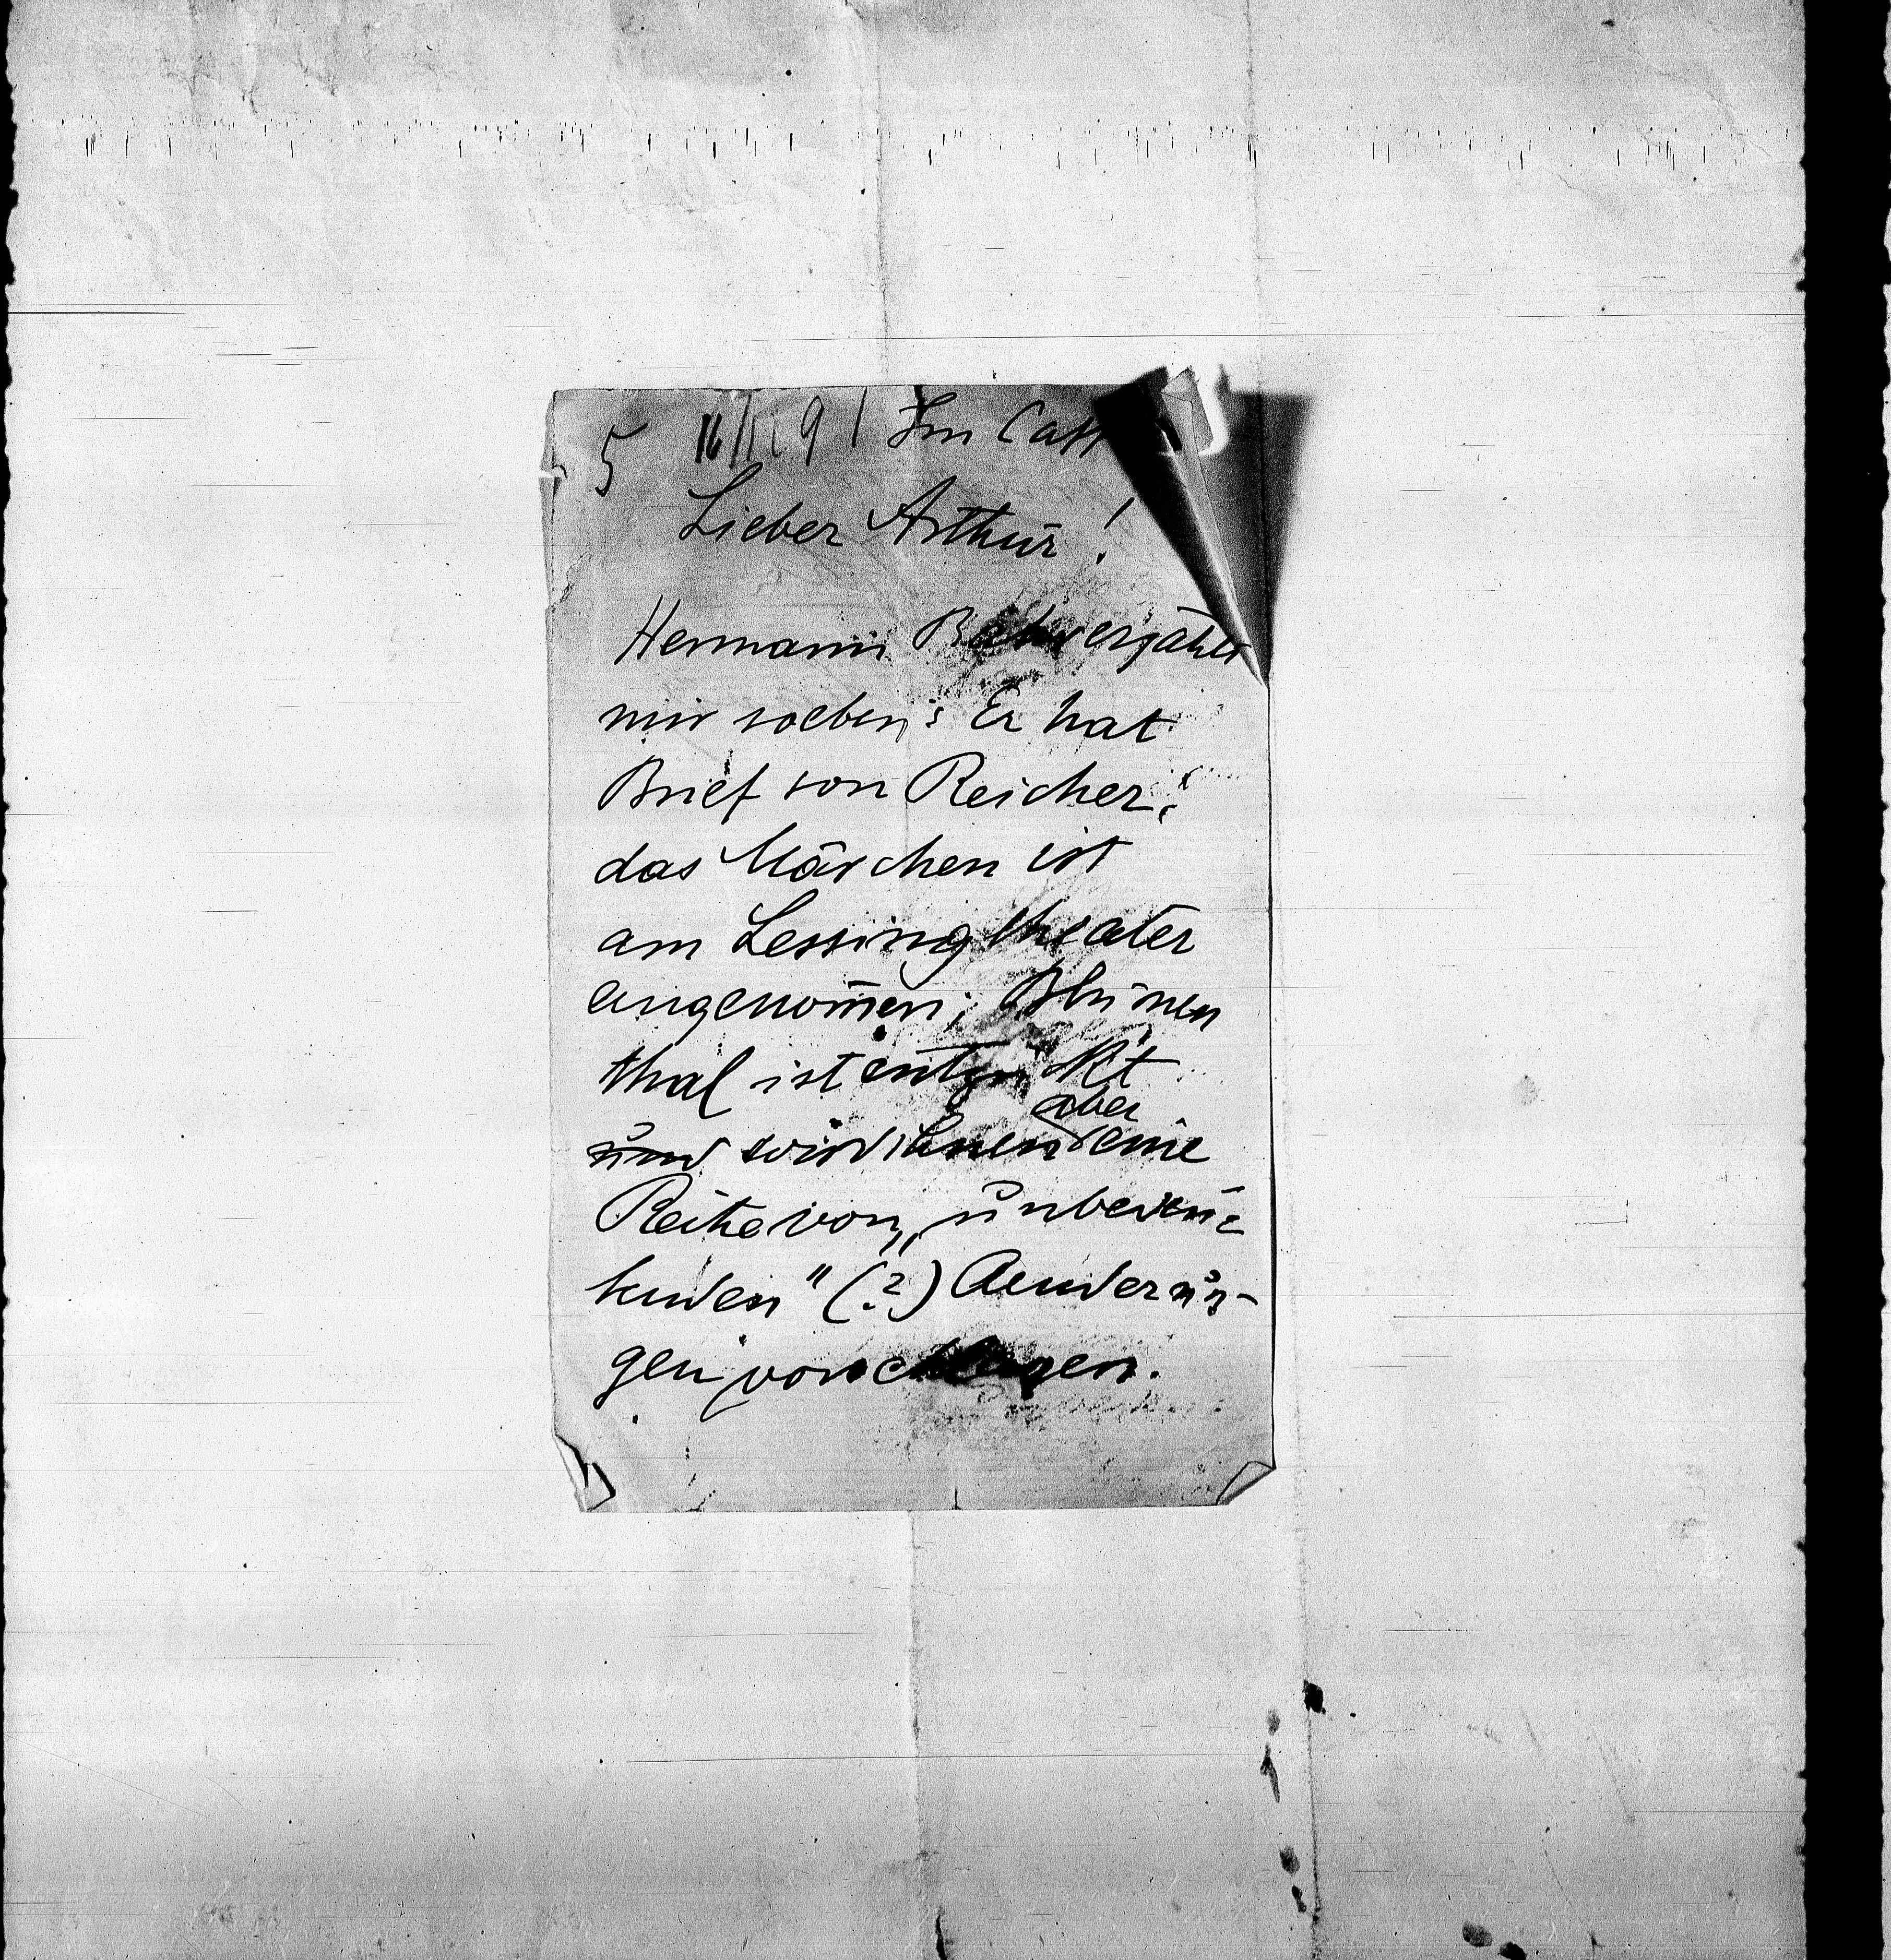 5 16/11 91 Im Caff
Lieber Arthur!
Hermann Bahr erzählt
mir soeben: Er hat
Brief von Reicher:
das Märchen ist
am Lessingtheater
angenom̄en; Blumen
thal ist entzückt
aber
und wird Ihnen eine
Reihe von „unbedeu-
tenden" (?) Aenderun-
gen vorschlagen.